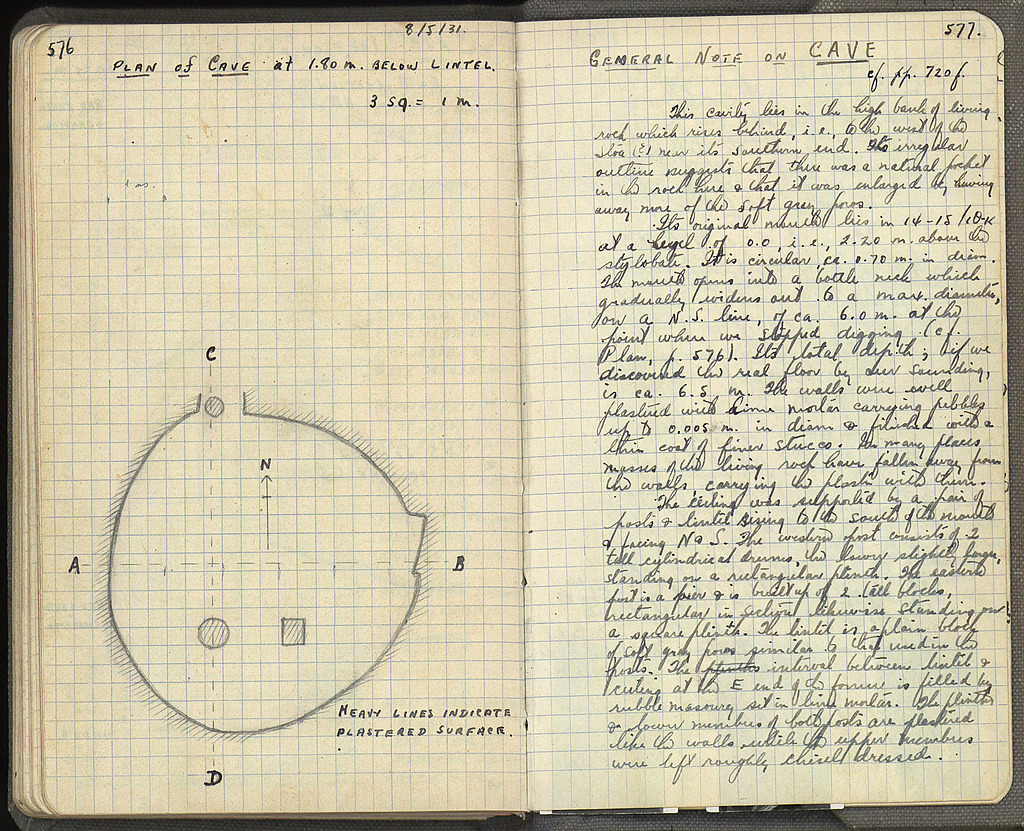 576
8/5/31.
PLAN OF CAVE at 1.80 m. BELOW LINTEL.
3 sq. = 1 m.
C
N
A
B
D
HEAVY LINES INDICATE
PLASTERED SURFACE.
577.
GENERAL NOTE ON CAVE
cf. pp. 720 f.
This cavity lies in the high bank of living
rock which rises behind, i.e., to the west of the
Stoa (?) near its southern end. Its irregular
outline suggests that there was a natural pocket
in the rock here & that it was enlarged by hewing
away more of the soft gray poros.
Its original mouth lies in 14-15/
at a level of 0.0, i.e., 2.20 m. above the
stylobate. It is circular, ca. 0.70 m. in diam.
The mouth opens into a bottle neck which
gradually widens out to a max. diameter,
on a N.S. line, of ca. 6.0 m. at the
point where we stopped digging (cf.
Plan, p. 576). Its total depth, if we
discovered the real floor by our sounding,
is ca. 6.5 m. The walls were well
plastered with lime mortar carrying pebbles
up to 0.005 m. in diam & finished with a
thin coat of finer stucco. In many places
masses of the living rock have fallen away from
the walls carrying the plaster with them.
The ceiling was supported by a pair of
posts & lintel rising to the south of the mouth
& facing N & S. The western post consists of 2
tall cylindrical drums, the lower slightly larger,
standing on a rectangular plinth. The eastern
post is a pier & is built up of 2 tall blocks,
rectangular in section likewise standing on
a square plinth. The lintel is a plain block
of soft gray poros similar to that used in the
posts. The plinths interval between lintel &
ceiling at the E end of the former is filled by
rubble masonry set in lime mortar. The plinths
& lower members of both posts are plastered
like the walls while the upper members
were left roughly chisel dressed.